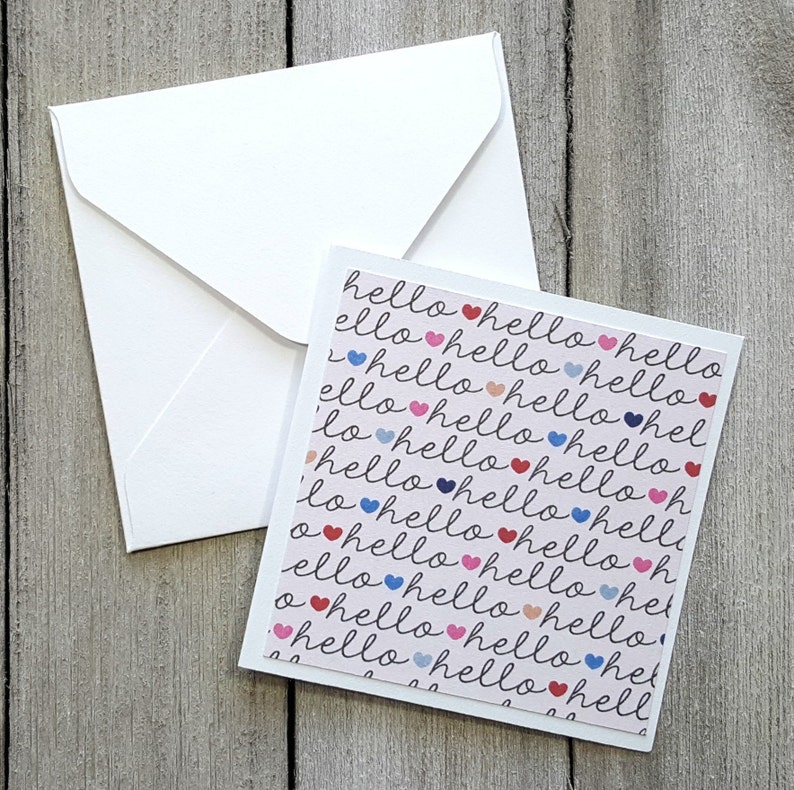 hello hello hello
ello hello hello
o hello hello
hello hello hel
ello hello hello
lo hello hello
hello hello h
lo hello hello
o hello hello h
hello hello h
ello hello hello
hello hello
hello hello
hello hell